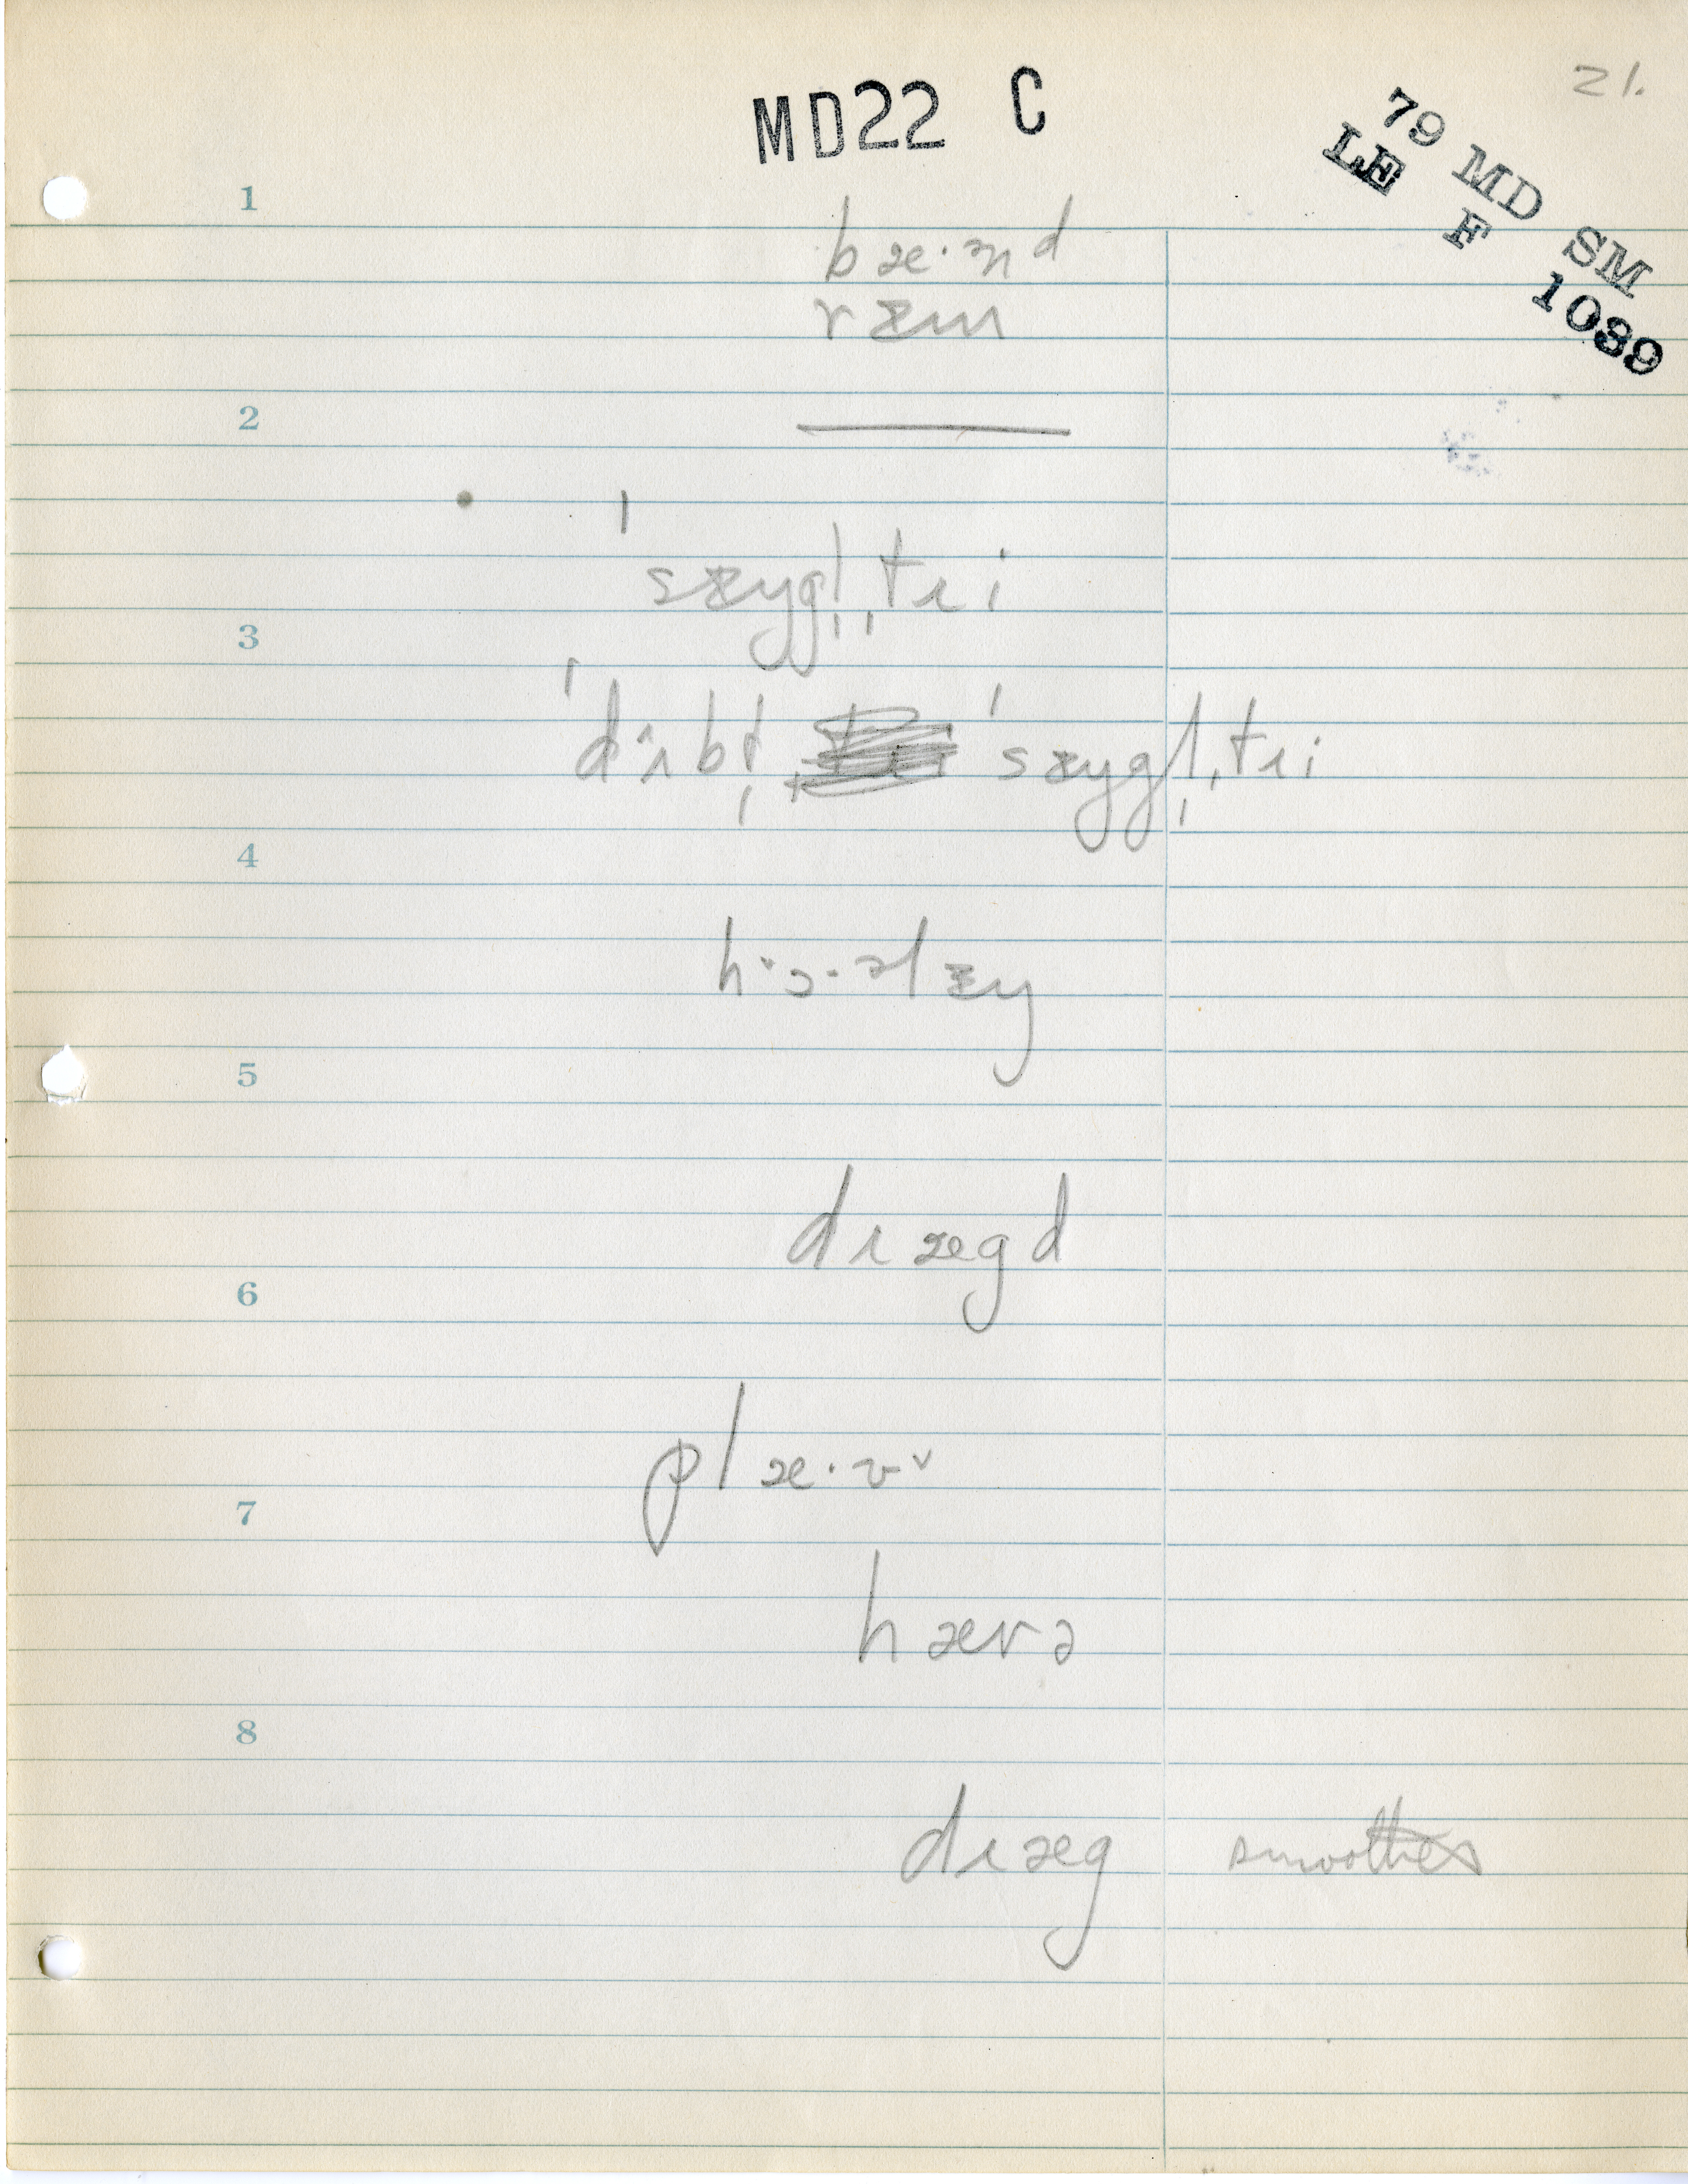 21.
MD22 C
79 MD SM
LE F 1039
1
bæ·ᵊnᵈ
rᵻm
2
ˈsᵻŋgl̩ˌtɹi
3
ˈdʌbl̩ ˈsᵻŋgl̩ˌtɹi
4
hɔ·əlᵻŋ
5
dɹægd
6
plæ·ʊ
7
hærə
8
dɹæg smoothes